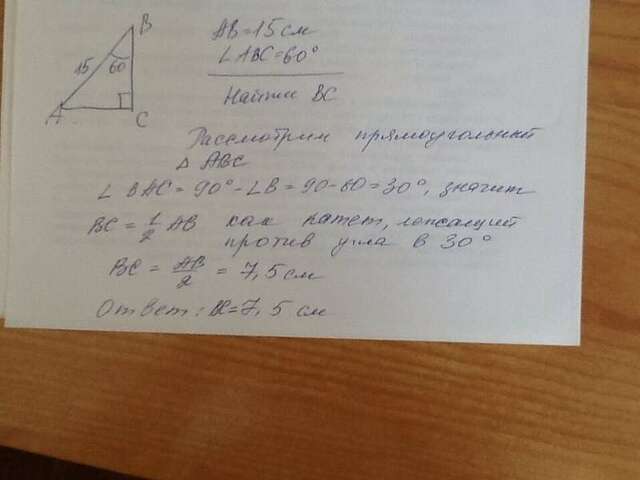 B
15
60
A
C
AB=15см
∠ABC=60°
Найти BC
Рассмотрим прямоугольный
△ ABC
∠ BAC = 90° - ∠B = 90-60=30°, значит
BC = 1/2 AB как катет, лежащий
против угла в 30°
BC = AB/2 = 7,5 см
Ответ: BC=7,5 см